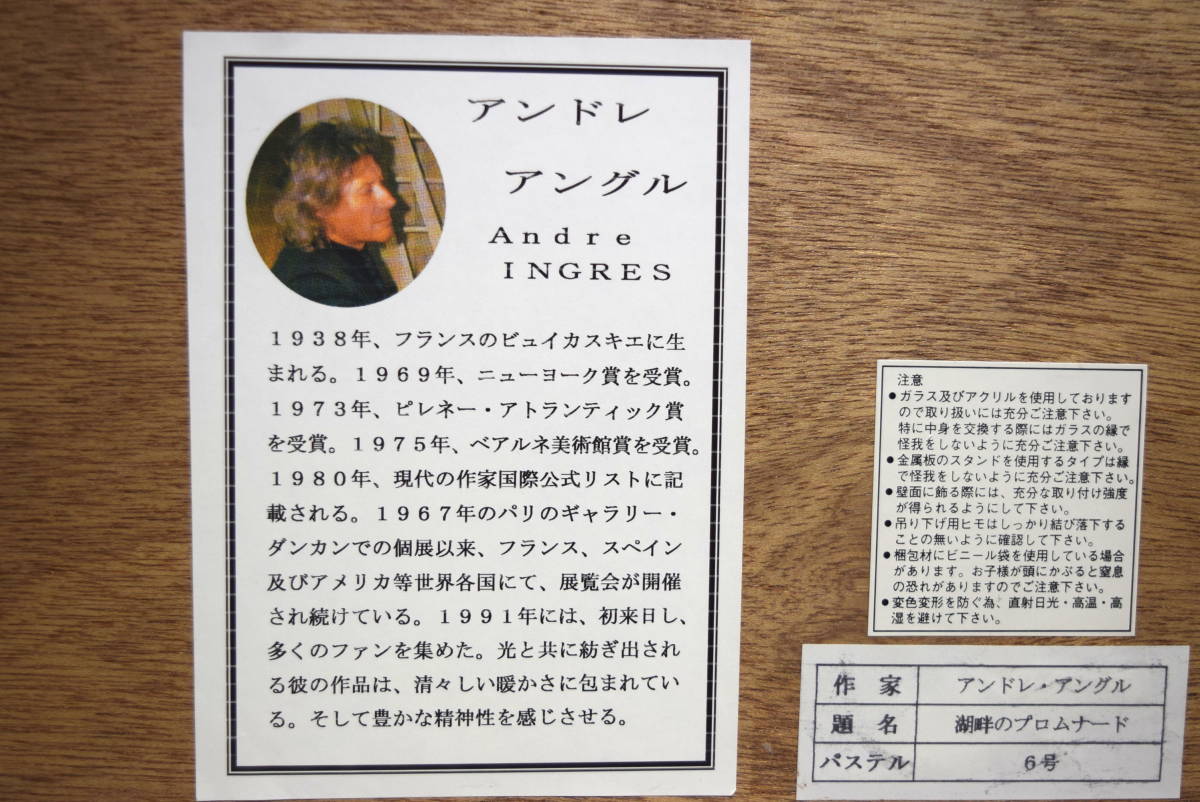 アンドレ
アングル
Andre
INGRES
1938年、フランスのビュイカスキエに生
まれる。1969年、ニューヨーク賞を受賞。
1973年、ピレネー・アトランティック賞
を受賞。1975年、ベアルネ美術館賞を受賞。
1980年、現代の作家国際公式リストに記
載される。1967年のパリのギャラリー・
ダンカンでの個展以来、フランス、スペイン
及びアメリカ等世界各国にて、展覧会が開催
され続けている。1991年には、初来日し、
多くのファンを集めた。光と共に紡ぎ出され
る彼の作品は、清々しい暖かさに包まれてい
る。そして豊かな精神性を感じさせる。
注意
●ガラス及びアクリルを使用しております
ので取り扱いには充分ご注意下さい。
特に中身を交換する際にはガラスの縁で
怪我をしないように充分ご注意下さい。
●金属板のスタンドを使用するタイプは縁
で怪我をしないように充分ご注意下さい。
●壁面に飾る際には、充分な取り付け強度
が得られるようにして下さい。
●吊り下げ用ヒモはしっかり結び落下する
ことの無いように確認して下さい。
●梱包材にビニール袋を使用している場合
があります。お子様が頭にかぶると窒息
の恐れがありますのでご注意下さい。
●変色変形を防ぐ為、直射日光・高温・高
湿を避けて下さい。
作家 アンドレ・アングル
題名 湖畔のプロムナード
パステル 6号